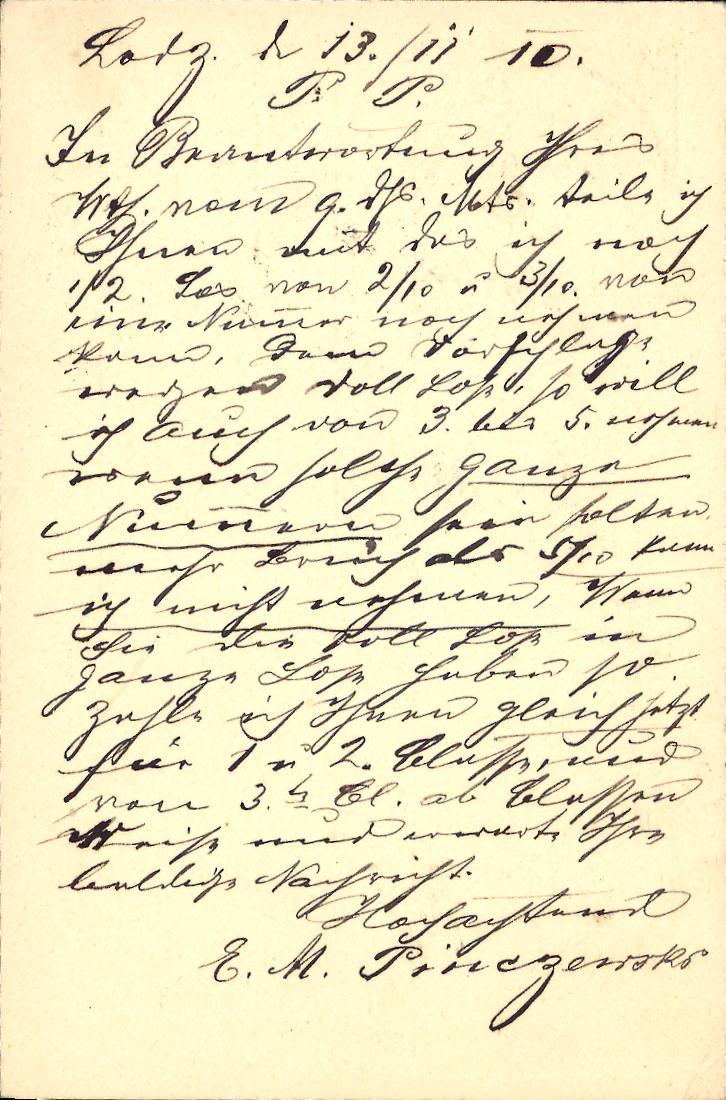 Lodz. d 13./11 10.
P. P.
In Beantwortung Ihres
Wth. vom 9. dfs. Mts. teile ich
Ihnen mit das ich noch
1/2. Los von 2/10 u 3/10. von
eine Numer noch nehmen
kann, Dem Vorschlage
wegen Voll Lose, so will
ich auch von 3. bis 5. nehmen
wenn solche ganze
Numern sein solten.
mehr Bruch als 5/10 kann
ich nicht nehmen, Wenn
Sie die Voll Lose in
ganze Lose haben so
zahle ich Ihnen gleich jetzt
für 1 u 2. Classe, und
von 3. Cl. ab Classen
Weise und erwarte Ihre
baldige Nachricht.
Hochachtend
E. M. Pinczewski